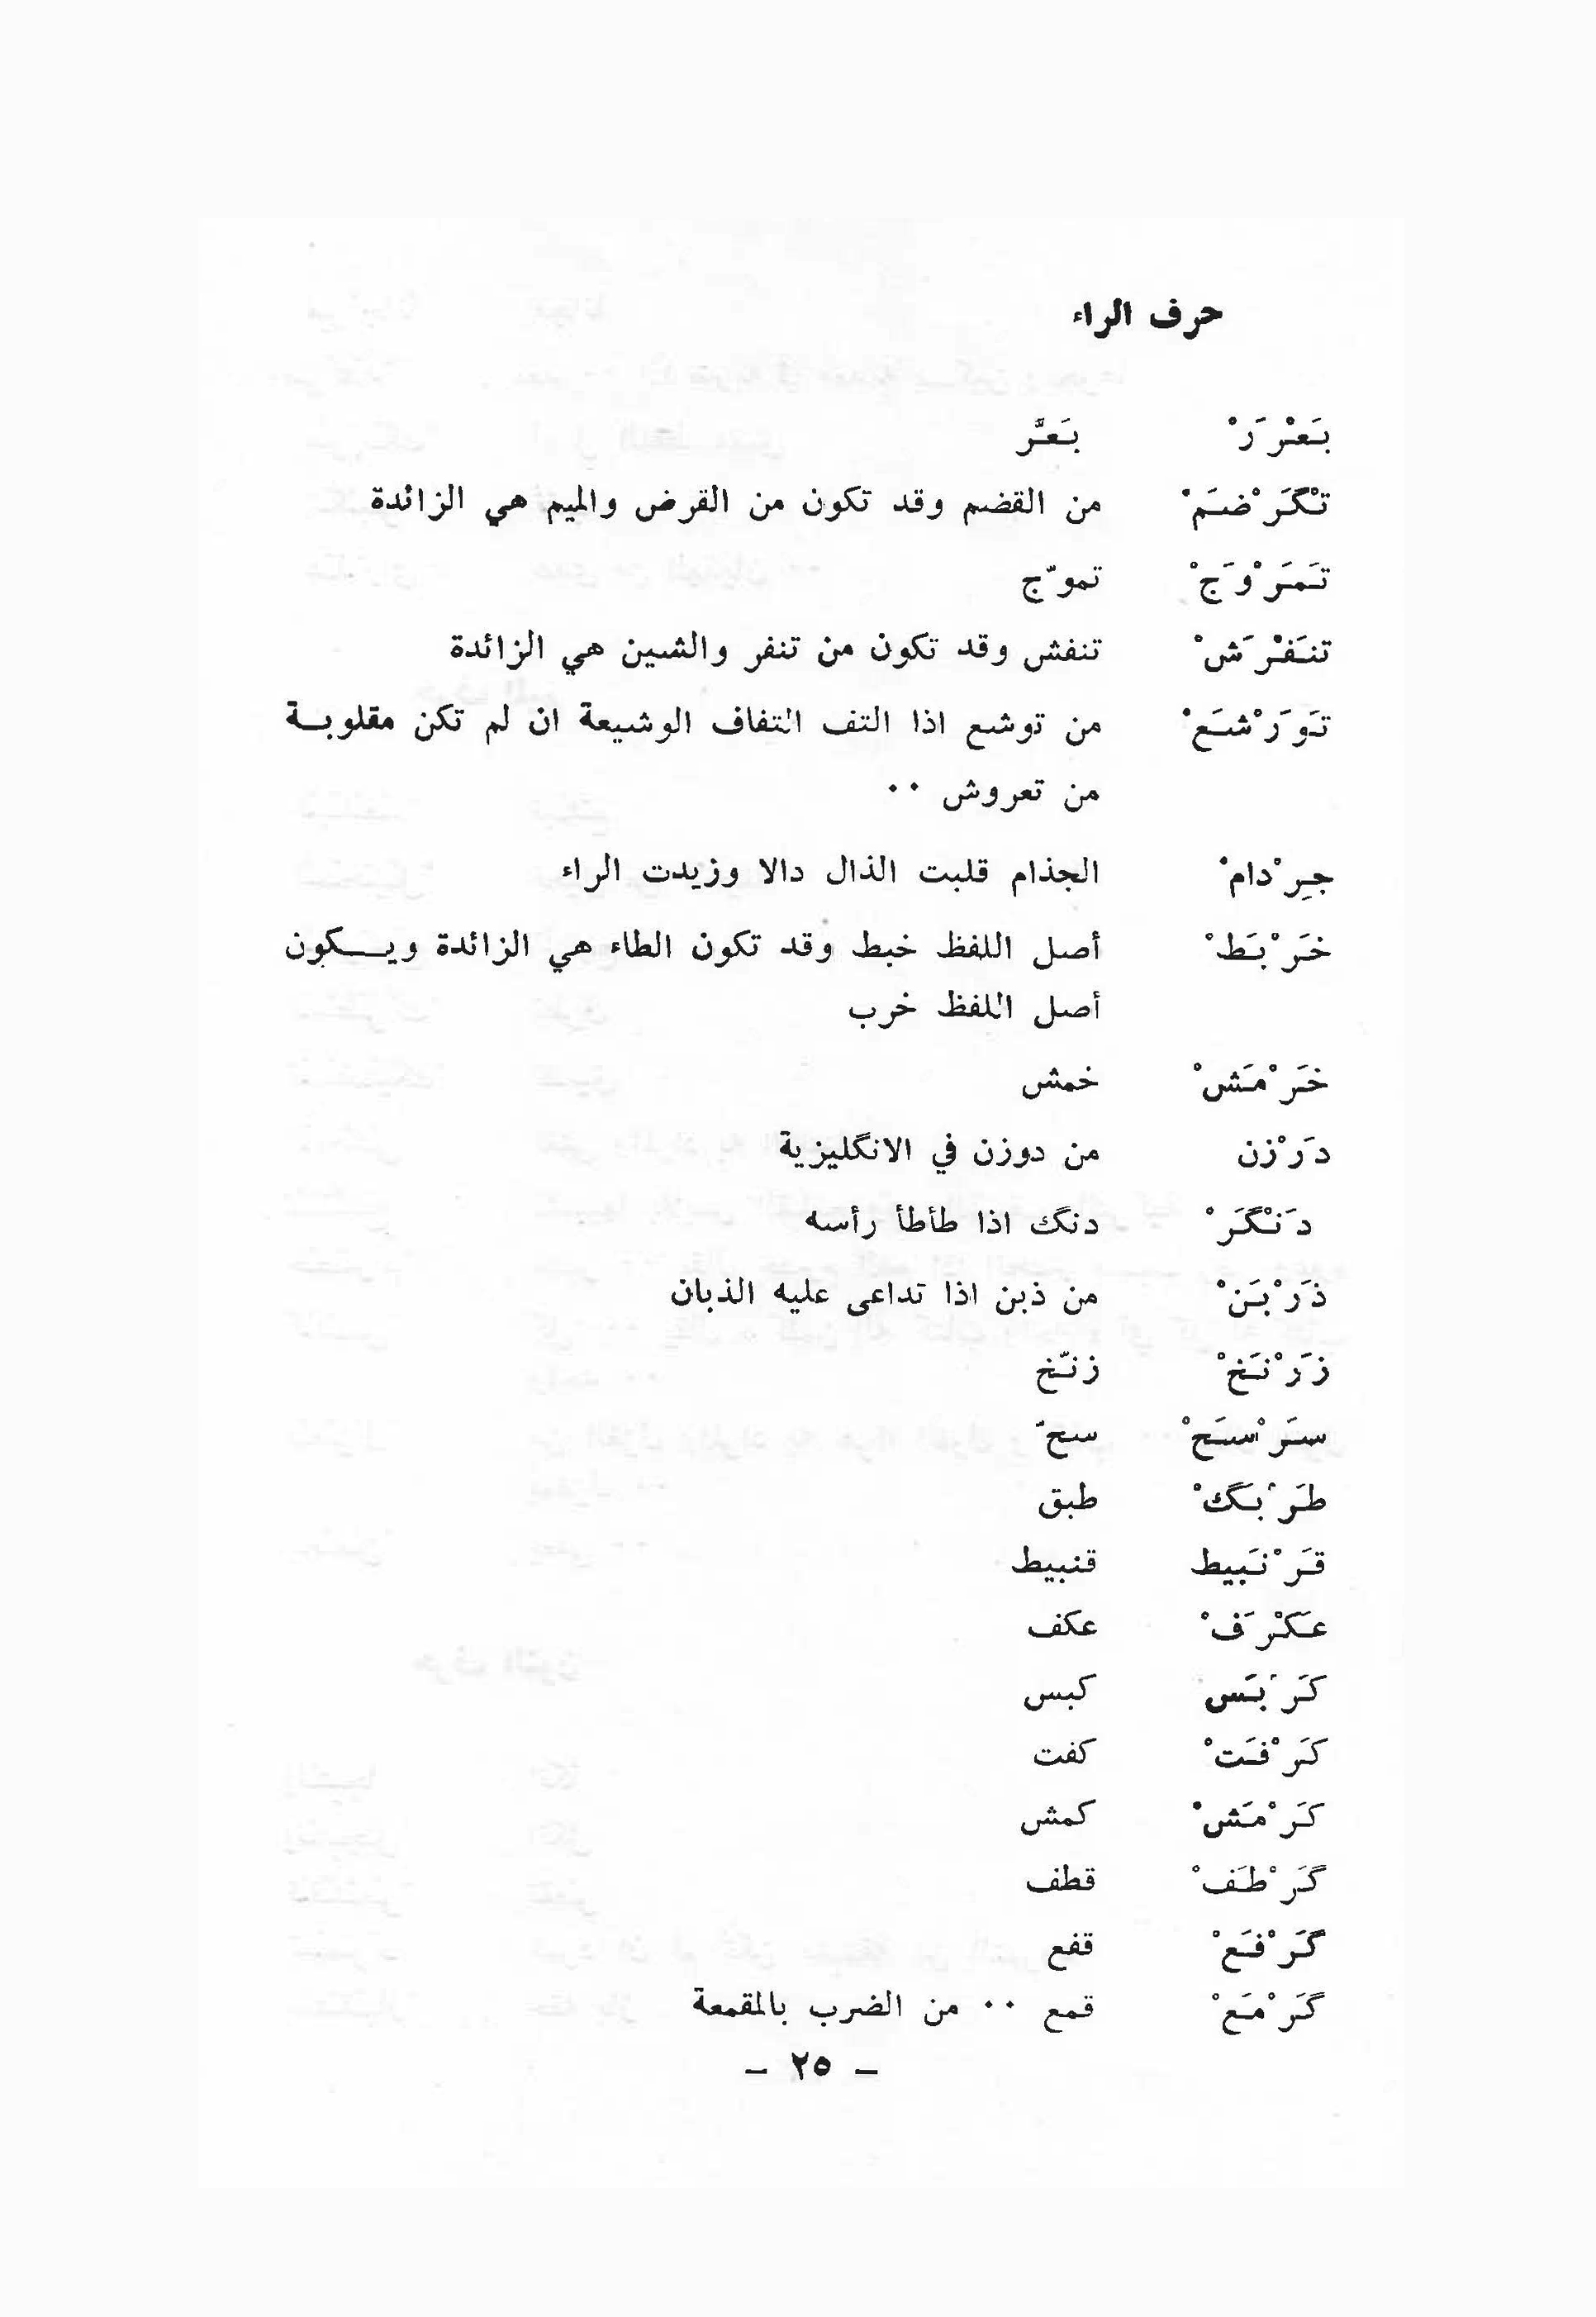 حرف الراء
بَعْرَرْ بَعَّر
تْگَرْضَمْ من القضم وقد تكون من القرض والميم هي الزائدة
تَمَرْوَجْ تموّج
تنَفْرَشْ تنفش وقد تكون من تنفر والشين هي الزائدة
تَوَرْشَعْ من توشع اذا التف التفاف الوشيعة ان لم تكن مقلوبــة
من تعروش ٠٠
جِرْدامْ الجذام قلبت الذال دالا وزيدت الراء
خَرْبَطْ أصل اللفظ خبط وقد تكون الطاء هي الزائدة ويــكون
أصل اللفظ خرب
خَرْمَشْ خمش
دَرْزن من دوزن في الانگليزية
دَنْگَرْ دنگ اذا طأطأ رأسه
ذَرْبَنْ من ذبن اذا تداعى عليه الذبان
زَرْنَخْ زنّخ
سَرْسَحْ سحّ
طَرْبَگْ طبق
قَرْنَبيط قنبيط
عَكْرَفْ عكف
كَرْبَس كبس
كَرْفَتْ كفت
كَرْمَشْ كمش
گَرْطَفْ قطف
گَرْفَعْ قفع
گَرْمَعْ قمع ٠٠ من الضرب بالمقمعة
– ٢٥ –